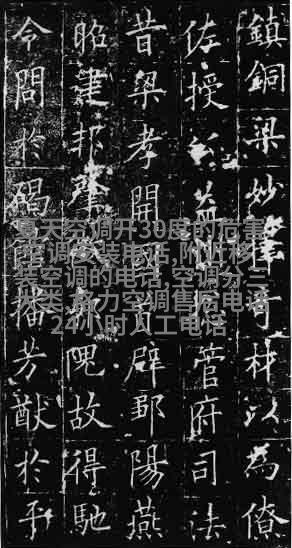 鎮銅梁妙擇奇材以為僚
佐授公益州管府司法
昔梁孝開國首辟鄒陽燕
昭建邦肇徵郭隗故得馳
令問於碣館播芳猷於平
夏天空调开30度的危害
,空调安装电话,附近移
装空调的电话,空调分三
大类,格力空调售后电话
24小时人工电话